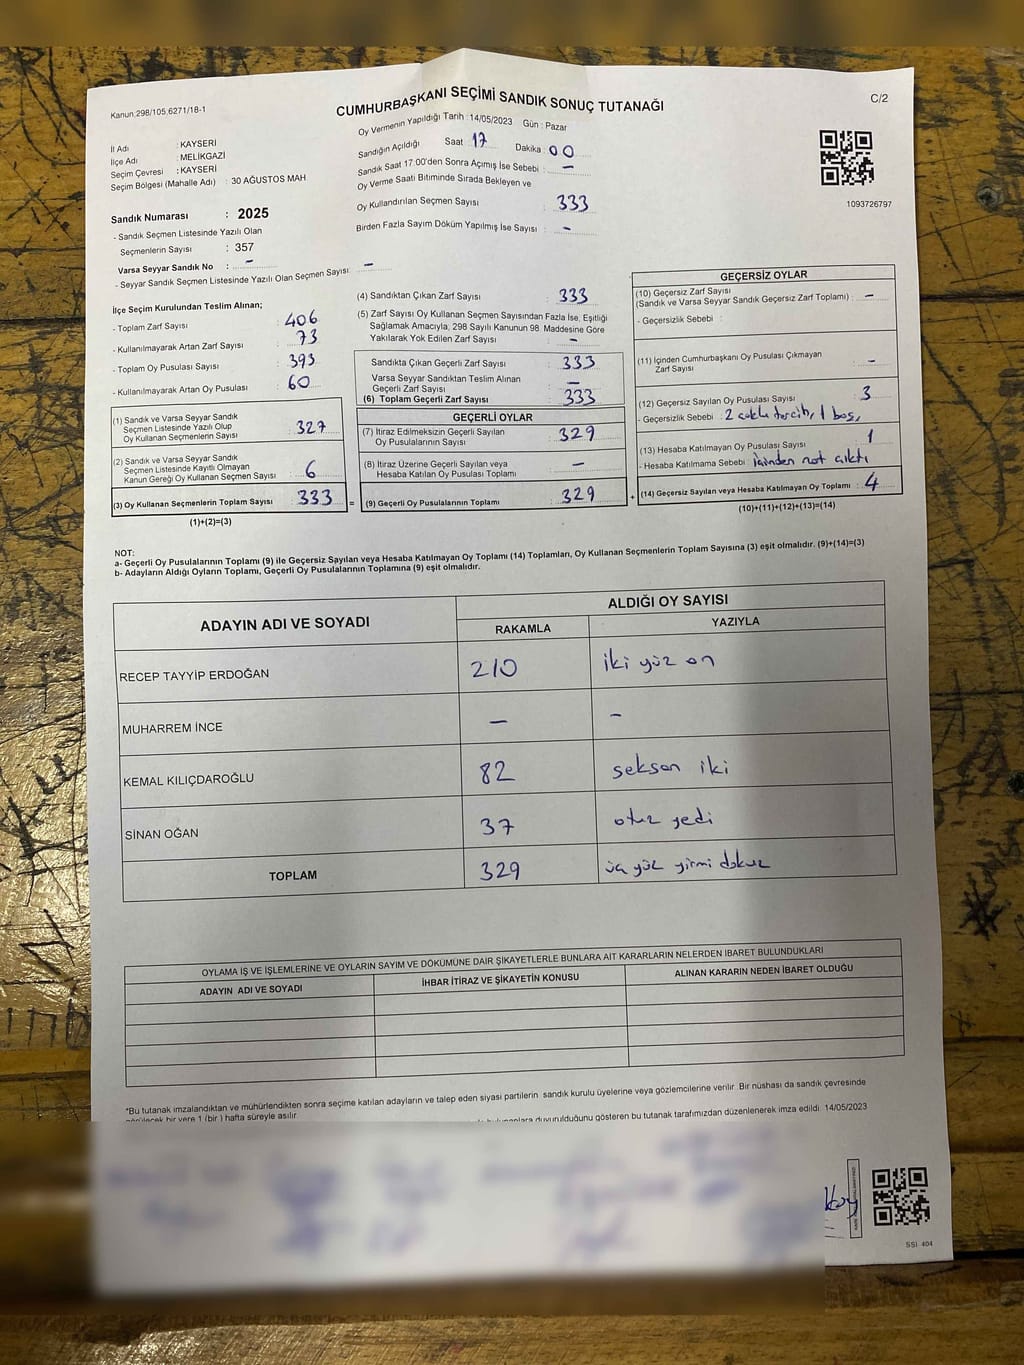 Kanun.298/105,6271/18-1
CUMHURBAŞKANI SEÇİMİ SANDIK SONUÇ TUTANAĞI
C/2
Oy Vermenin Yapıldığı Tarih : 14/05/2023 Gün : Pazar
İl Adı : KAYSERİ
İlçe Adı : MELİKGAZİ
Seçim Çevresi : KAYSERİ
Seçim Bölgesi (Mahalle Adı) : 30 AĞUSTOS MAH
Sandık Numarası : 2025
- Sandık Seçmen Listesinde Yazılı Olan
Seçmenlerin Sayısı : 357
Varsa Seyyar Sandık No : -
- Seyyar Sandık Seçmen Listesinde Yazılı Olan Seçmen Sayısı: -
Sandığın Açıldığı Saat 17 Dakika : 00
Sandık Saat 17:00'den Sonra Açımış İse Sebebi : -
Oy Verme Saati Bitiminde Sırada Bekleyen ve
Oy Kullandırılan Seçmen Sayısı : 333
Birden Fazla Sayım Döküm Yapılmış İse Sayısı : -
1093726797
İlçe Seçim Kurulundan Teslim Alınan;
- Toplam Zarf Sayısı : 406
- Kullanılmayarak Artan Zarf Sayısı : 73
- Toplam Oy Pusulası Sayısı : 393
- Kullanılmayarak Artan Oy Pusulası : 60
(1) Sandık ve Varsa Seyyar Sandık
Seçmen Listesinde Yazılı Olup
Oy Kullanan Seçmenlerin Sayısı : 327
(2) Sandık ve Varsa Seyyar Sandık
Seçmen Listesinde Kayıtlı Olmayan
Kanun Gereği Oy Kullanan Seçmen Sayısı : 6
(3) Oy Kullanan Seçmenlerin Toplam Sayısı : 333 =
(1)+(2)=(3)
(4) Sandıktan Çıkan Zarf Sayısı : 333
(5) Zarf Sayısı Oy Kullanan Seçmen Sayısından Fazla İse, Eşitliği
Sağlamak Amacıyla, 298 Sayılı Kanunun 98. Maddesine Göre
Yakılarak Yok Edilen Zarf Sayısı : -
Sandıkta Çıkan Geçerli Zarf Sayısı : 333
Varsa Seyyar Sandıktan Teslim Alınan
Geçerli Zarf Sayısı : -
(6) Toplam Geçerli Zarf Sayısı : 333
GEÇERLİ OYLAR
(7) İtiraz Edilmeksizin Geçerli Sayılan
Oy Pusulalarının Sayısı : 329
(8) İtiraz Üzerine Geçerli Sayılan veya
Hesaba Katılan Oy Pusulası Toplamı : -
(9) Geçerli Oy Pusulalarının Toplamı : 329 +
GEÇERSİZ OYLAR
(10) Geçersiz Zarf Sayısı
(Sandık ve Varsa Seyyar Sandık Geçersiz Zarf Toplamı) : -
- Geçersizlik Sebebi :
(11) İçinden Cumhurbaşkanı Oy Pusulası Çıkmayan
Zarf Sayısı : -
(12) Geçersiz Sayılan Oy Pusulası Sayısı : 3
- Geçersizlik Sebebi : 2 çoklu tercih, 1 boş,
(13) Hesaba Katılmayan Oy Pusulası Sayısı : 1
- Hesaba Katılmama Sebebi : içinden not çıktı
(14) Geçersiz Sayılan veya Hesaba Katılmayan Oy Toplamı : 4
(10)+(11)+(12)+(13)=(14)
NOT:
a- Geçerli Oy Pusulalarının Toplamı (9) ile Geçersiz Sayılan veya Hesaba Katılmayan Oy Toplamı (14) Toplamları, Oy Kullanan Seçmenlerin Toplam Sayısına (3) eşit olmalıdır. (9)+(14)=(3)
b- Adayların Aldığı Oyların Toplamı, Geçerli Oy Pusulalarının Toplamına (9) eşit olmalıdır.
ADAYIN ADI VE SOYADI ALDIĞI OY SAYISI
RAKAMLA YAZIYLA
RECEP TAYYİP ERDOĞAN 210 iki yüz on
MUHARREM İNCE - -
KEMAL KILIÇDAROĞLU 82 seksen iki
SİNAN OĞAN 37 otuz yedi
TOPLAM 329 üç yüz yirmi dokuz
OYLAMA İŞ VE İŞLEMLERİNE VE OYLARIN SAYIM VE DÖKÜMÜNE DAİR ŞİKAYETLERLE BUNLARA AİT KARARLARIN NELERDEN İBARET BULUNDUKLARI
ADAYIN ADI VE SOYADI İHBAR İTİRAZ VE ŞİKAYETİN KONUSU ALINAN KARARIN NEDEN İBARET OLDUĞU
*Bu tutanak imzalandıktan ve mühürlendikten sonra seçime katılan adayların ve talep eden siyasi partilerin sandık kurulu üyelerine veya gözlemcilerine verilir. Bir nüshası da sandık çevresinde
görülecek bir yere 1 (bir) hafta süreyle asılır.
duyurulduğunu gösteren bu tutanak tarafımızdan düzenlenerek imza edildi. 14/05/2023
SSİ 404